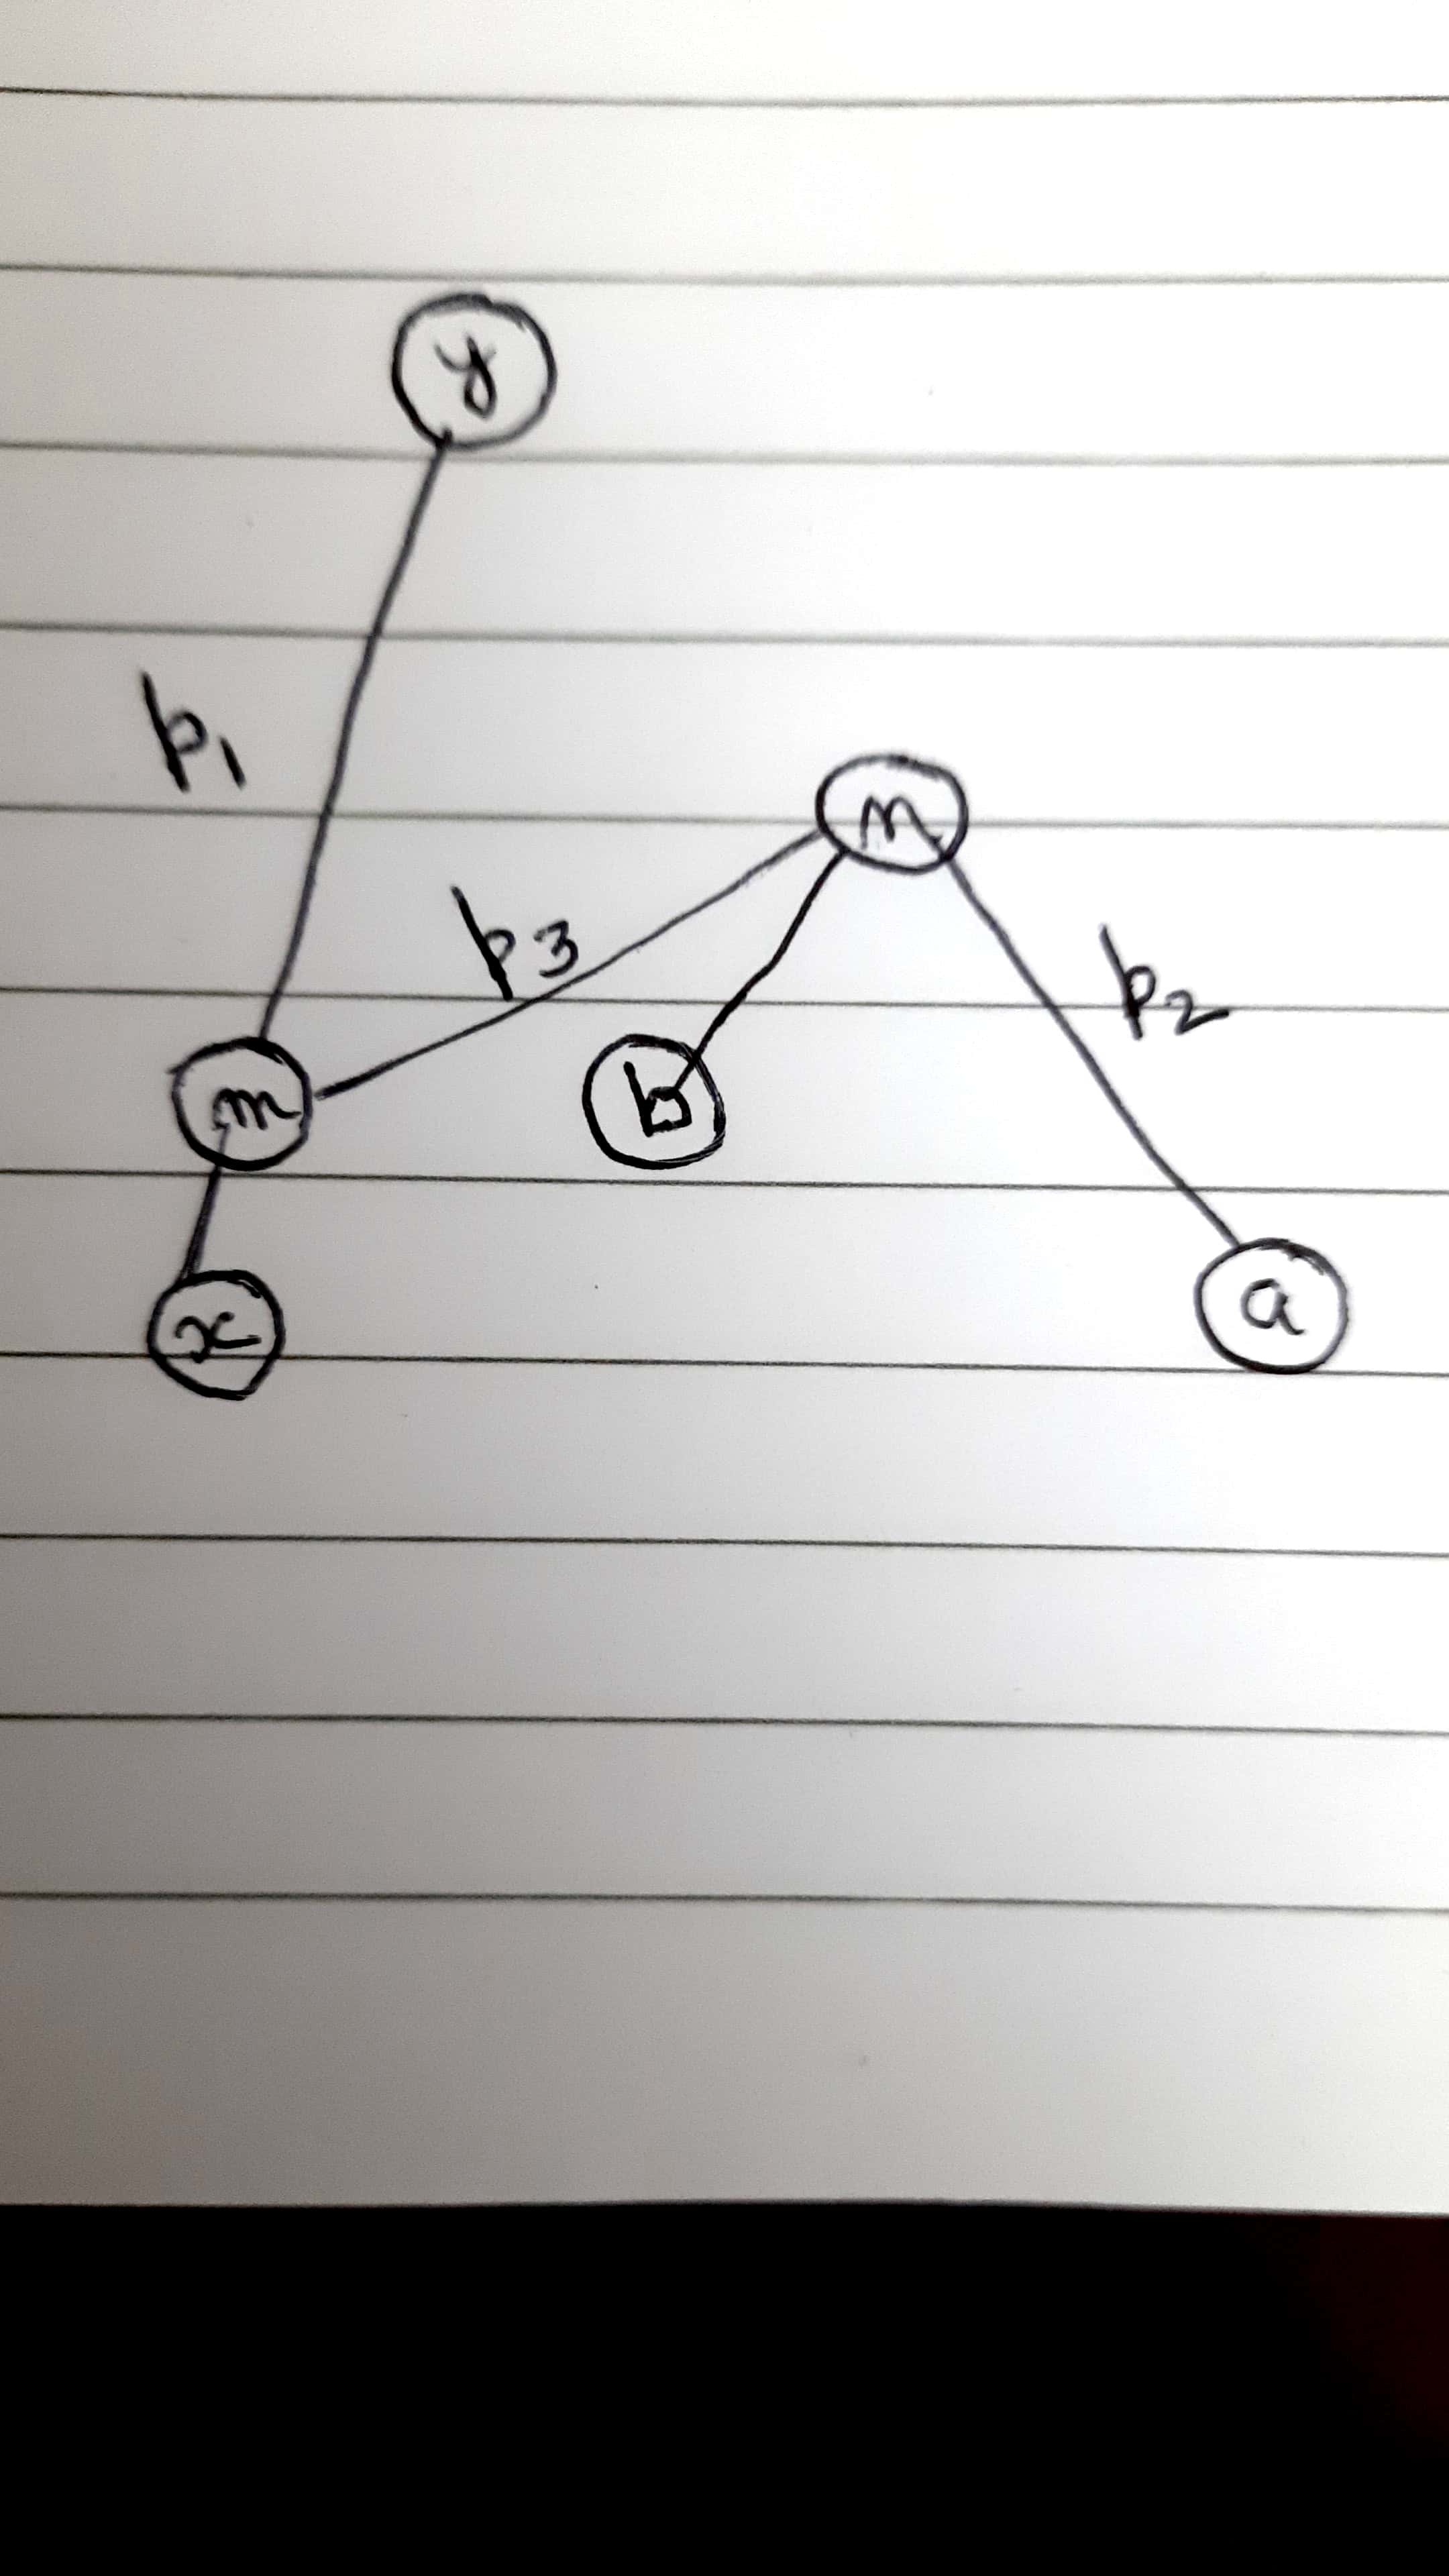 y
p1
n
p3
p2
m
b
x
a